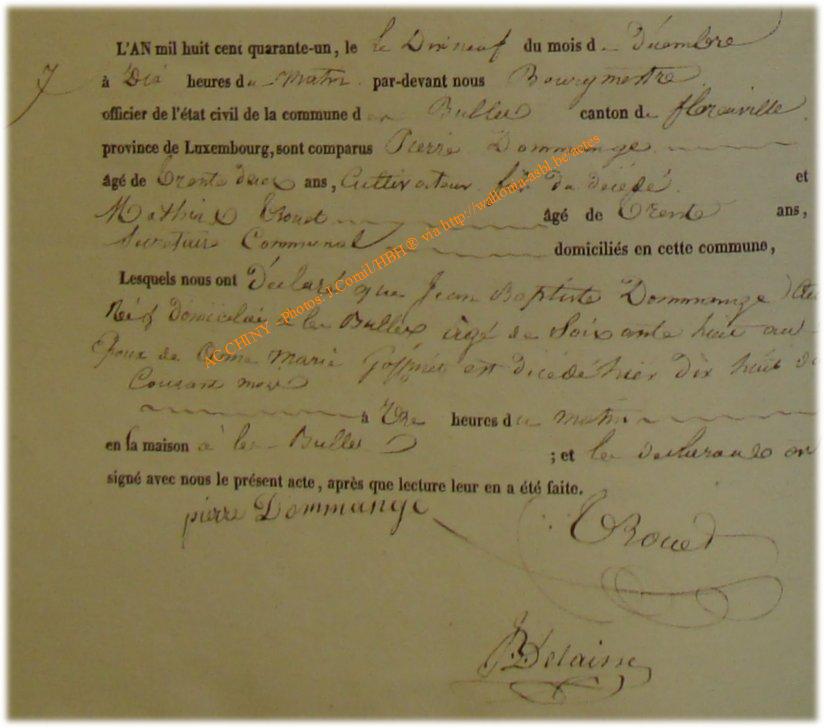 L'AN mil huit cent quarante-un, le le Dixneuf du mois d e Décembre
7 à Dix heures du matin par-devant nous Bourgmestre
officier de l'état civil de la commune d es Bulles canton de florenville
province de Luxembourg, sont comparus Pierre Dommange
âgé de trente deux ans, Cultivateur fils du décédé et
Mathieu trouet âgé de trente ans,
Secretaire Communal domiciliés en cette commune,
Lesquels nous ont Déclaré que Jean Baptiste Dommange
Né & Domicilié à les Bulles âgé de Soixante huit an
Epoux de Marie est décédé hier Dix huit du
Courant mois
à heures du matin
en la maison à les Bulles ; et les declarants on
signé avec nous le présent acte, après que lecture leur en a été faite.
pierre Dommange
TRouet
AC CHINY - photos J.Comil/HBH ® via http://wallonia-asbl.be/actes